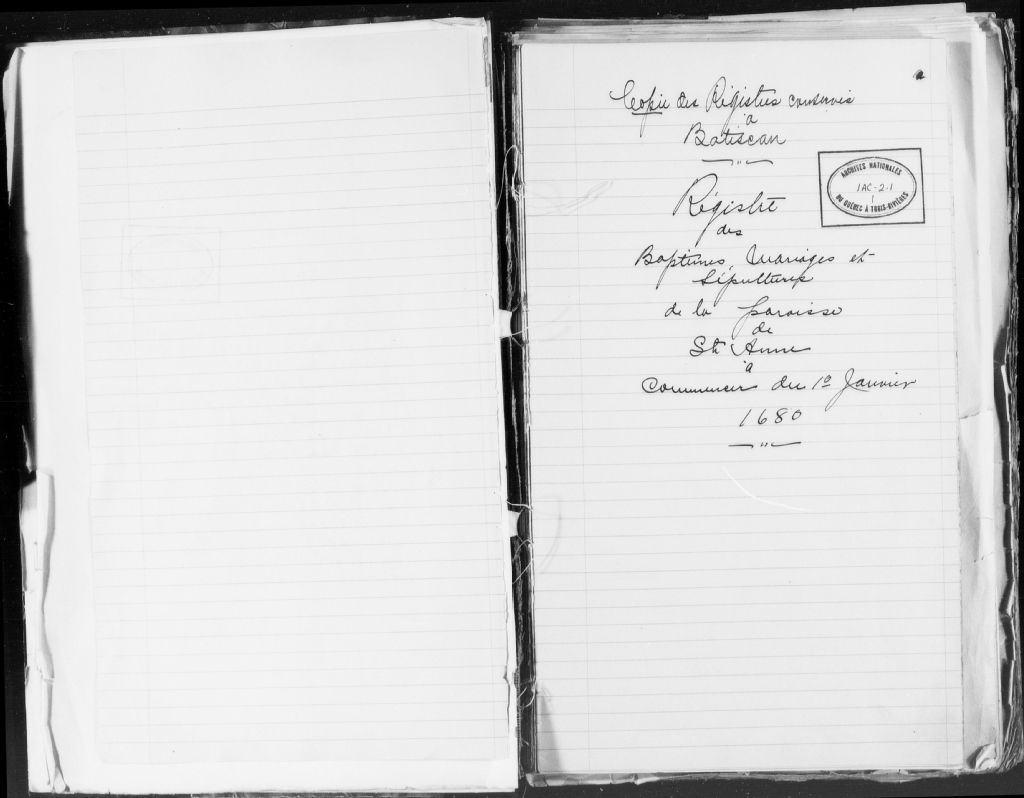 Copie des Régistres conservés
à
Batiscan
Régistre
des
Baptêmes, Mariages et
Sépultures
de la paroisse
de
Ste Anne
à
Commencer du 1o Janvier
1680
ARCHIVES NATIONALES
1AC-2-1
1
DU QUÉBEC À TROIS-RIVIÈRES